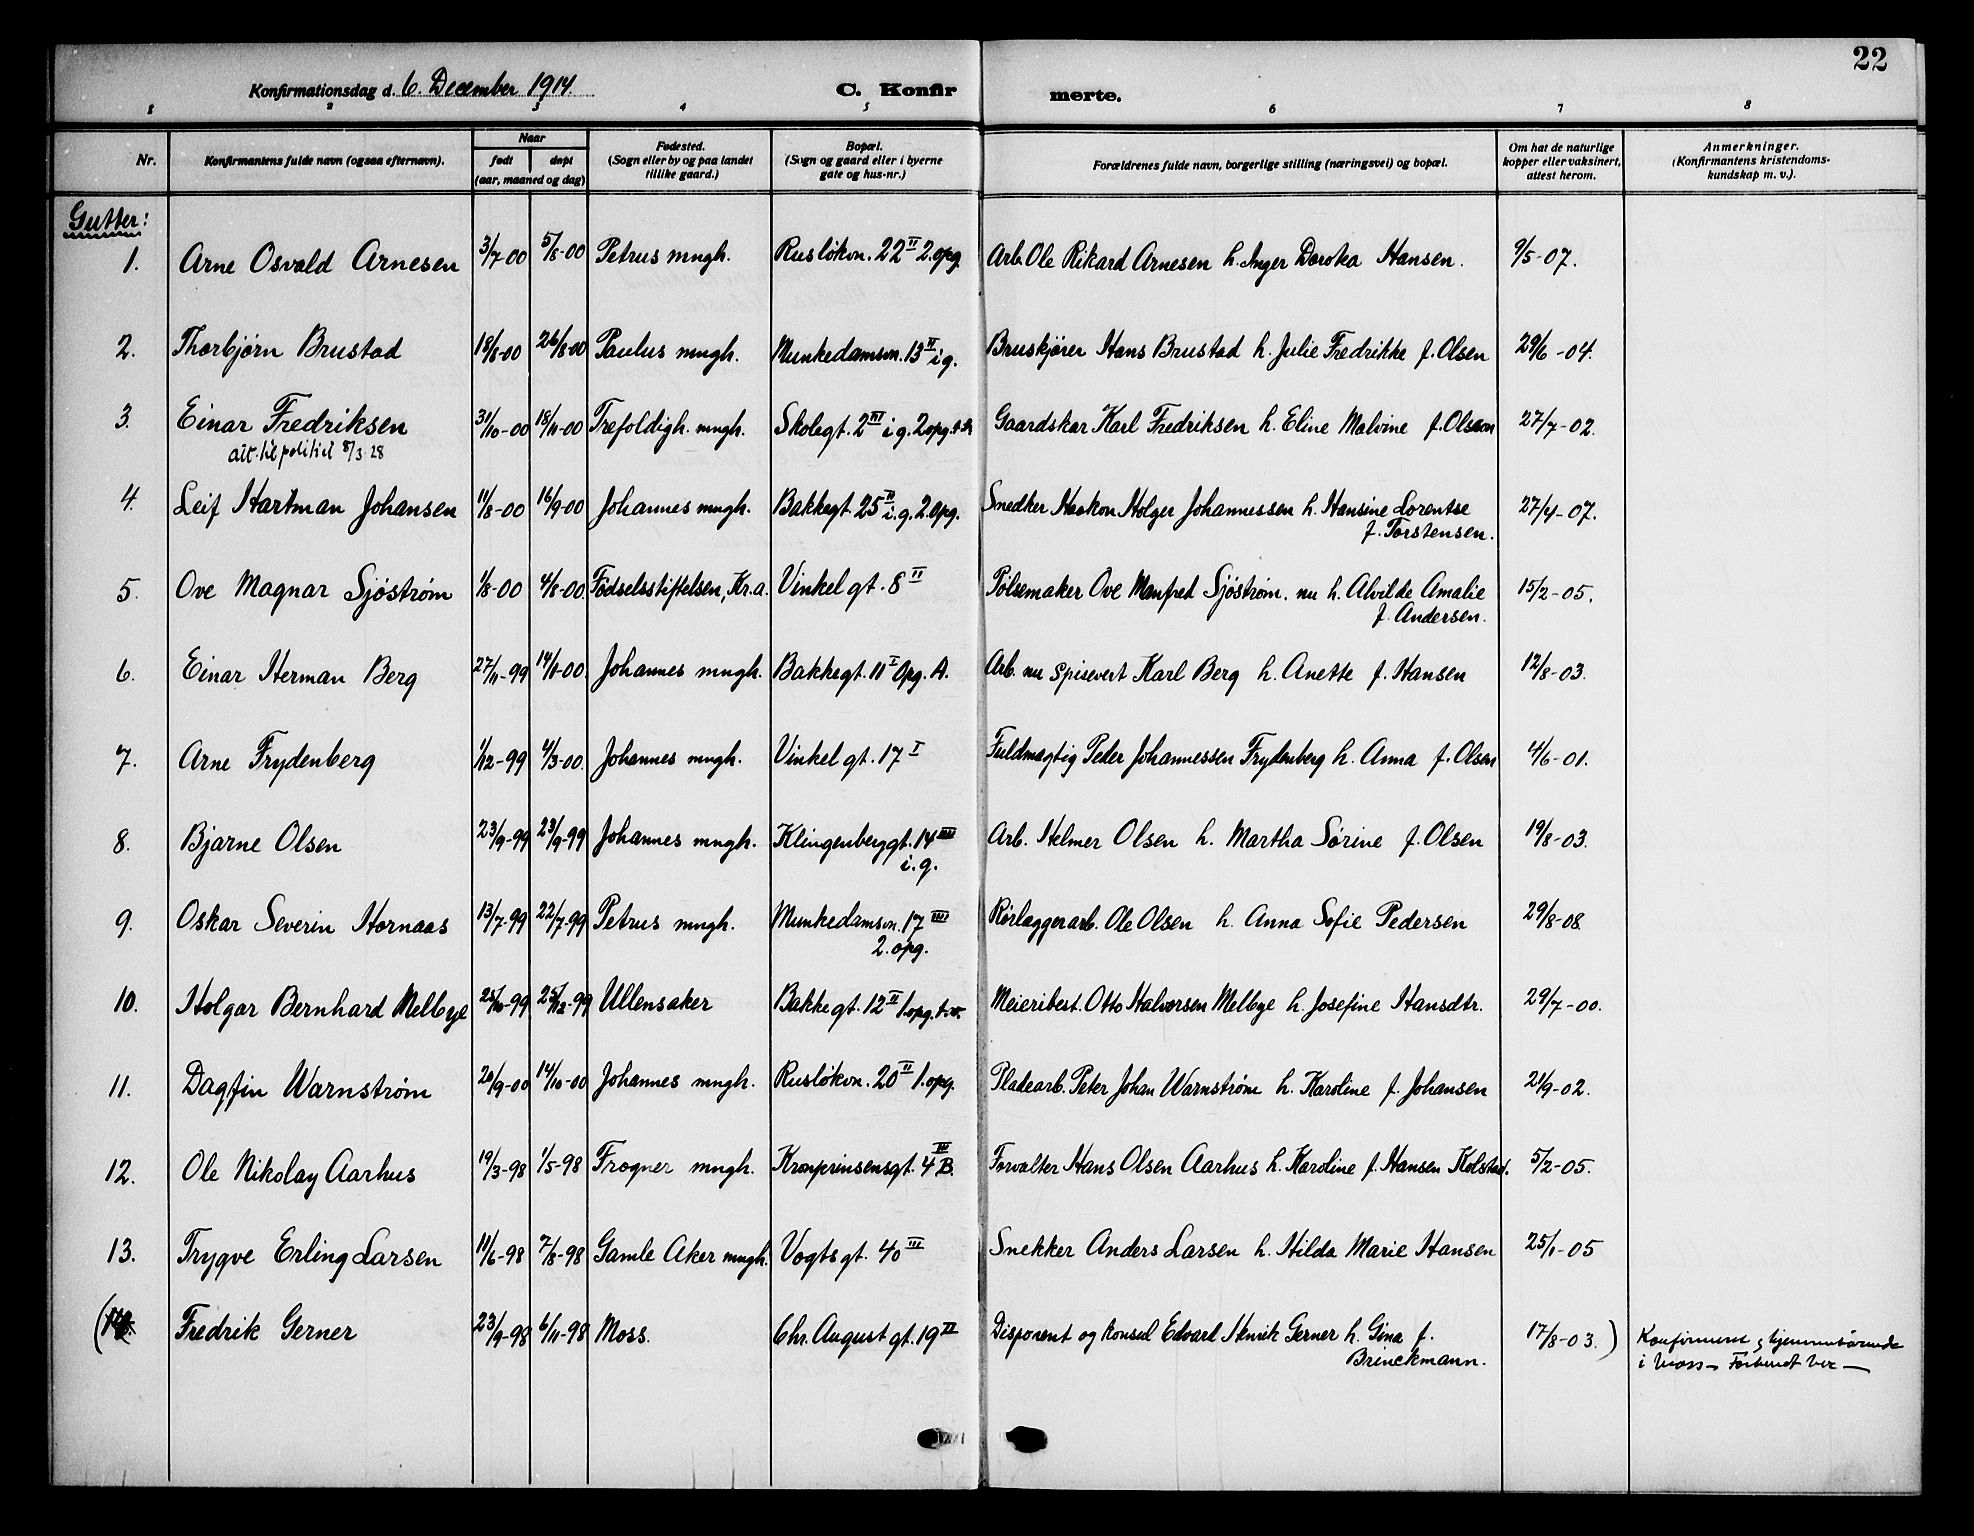 22
Konfirmationsdag d. 6. December 1914.
C. Konfirmerte.
1 2 3 4 5 6 7 8
Nr. Konfirmantens fulde navn (ogsaa efternavn). Naar født døpt (aar, maaned og dag) Fødested. (Sogn eller by og paa landet tillike gaard.) Bopæl. (Sogn og gaard eller i byerne gate og hus-nr.) Forældrenes fulde navn, borgerlige stilling (næringsvei) og bopæl. Om hat de naturlige kopper eller vaksinert, attest herom. Anmerkninger. (Konfirmantens kristendomskundskap m. v.).
Gutter:
1. Arne Osvald Arnesen 3/7-00 5/8-00 Petrus mngh. Rusløkvn. 22 II 2.opg. Arb. Ole Rikard Arnesen h. Inger Dorotea Hansen. 9/5-07.
2. Thorbjørn Brustad 18/8-00 26/8-00 Paulus mngh. Munkedamsvn. 13 IV i g. Bruskjører Hans Brustad h. Julie Fredrikke f. Olsen 29/6-04.
3. Einar Fredriksen 31/10-00 18/11-00 Trefoldigh. mngh. Skolegt. 2 III i g. 2 opg. Gaardskar Karl Fredriksen h. Eline Malvine f. Olsson 27/7-02.
att. til politiet 8/3.28
4. Leif Hartman Johansen 11/8-00 16/9-00 Johannes mngh. Bakkegt. 25 IV i. g. 2. opg. Snedker Haakon Holger Johannessen h. Hansine Lorentse f. Torstensen. 27/4-07.
5. Ove Magnar Sjøstrøm 1/8-00 4/8-00. Fødselsstiftelsen, Kr.a. Vinkelgt. 8 II Pølsemaker Ove Manfred Sjøstrøm. nu h. Alvilde Amalie f. Andersen. 15/2-05.
6. Einar Herman Berg 27/11-99 14/1-00. Johannes mngh. Bakkegt. 11 I Opg. A. Arb. nu spisevert Karl Berg h. Anette f. Hansen 12/8-03.
7. Arne Frydenberg 1/12-99 4/3-00. Johannes mngh. Vinkelgt. 17 I Fuldmægtig Peder Johannessen Frydenberg h. Anna f. Olsen 4/6-01.
8. Bjarne Olsen 23/9-99 23/9-99 Johannes mngh. Klingenberggt. 14 IIII i. g. Arb. Helmer Olsen h. Martha Sørine f. Olsen 19/8-03.
9. Oskar Severin Hornaas 13/7-99 22/7-99 Petrus mngh. Munkedamsvn. 17 IIII 2. opg. Rørlæggerarb. Ole Olsen h. Anna Sofie Pedersen 29/8-08.
10. Holgar Bernhard Melbye 25/10-99 25/12-99 Ullensaker Bakkegt. 12 II 1.opg. t.v. Meieribest. Otto Halvorsen Melbye h. Josefine Hansdtr. 29/7-00.
11. Dagfin Warnstrøm 20/9-00 14/10-00 Johannes mngh. Rusløkvn. 20 II 1.opg. Pladearb. Peter Johan Warnstrøm h. Karoline f. Johansen 21/9-02.
12. Ole Nikolay Aarhus 19/3-98 1/5-98 Frogner mngh. Kronprinsensgt. 4 III B. Forvalter Hans Olsen Aarhus h. Karoline f. Hansen Kolstad. 5/2-05.
13. Trygve Erling Larsen 11/6-98 7/8-98 Gamle Aker mngh. Vogtsgt. 40 III Snekker Anders Larsen h. Hilda Marie Hansen 25/1-05
(14. Fredrik Gerner 23/9-98 6/11-98 Moss. Chr. Augustgt. 19 II Disponent og konsul Edvard Henrik Gerner h. Gina f. Brinckmann. 17/8-03.) Konfirmeret i hjemmehørende
i Moss —